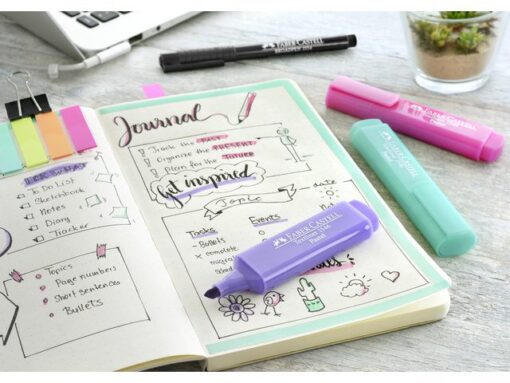 To Do List
Sketchbook
Notes
Diary
Tracker
Topics
Page numbers
Short sentences
Bullets
Journal
Track the PAST
Organize the PRESENT
Plan for the FUTURE
Get inspired
Topic
Tasks
Events
Bullets
date
× complete
FABER-CASTELL
FABER-CASTELL
Textliner 1546
Pastel
FABER-CASTELL
FABER-CASTELL